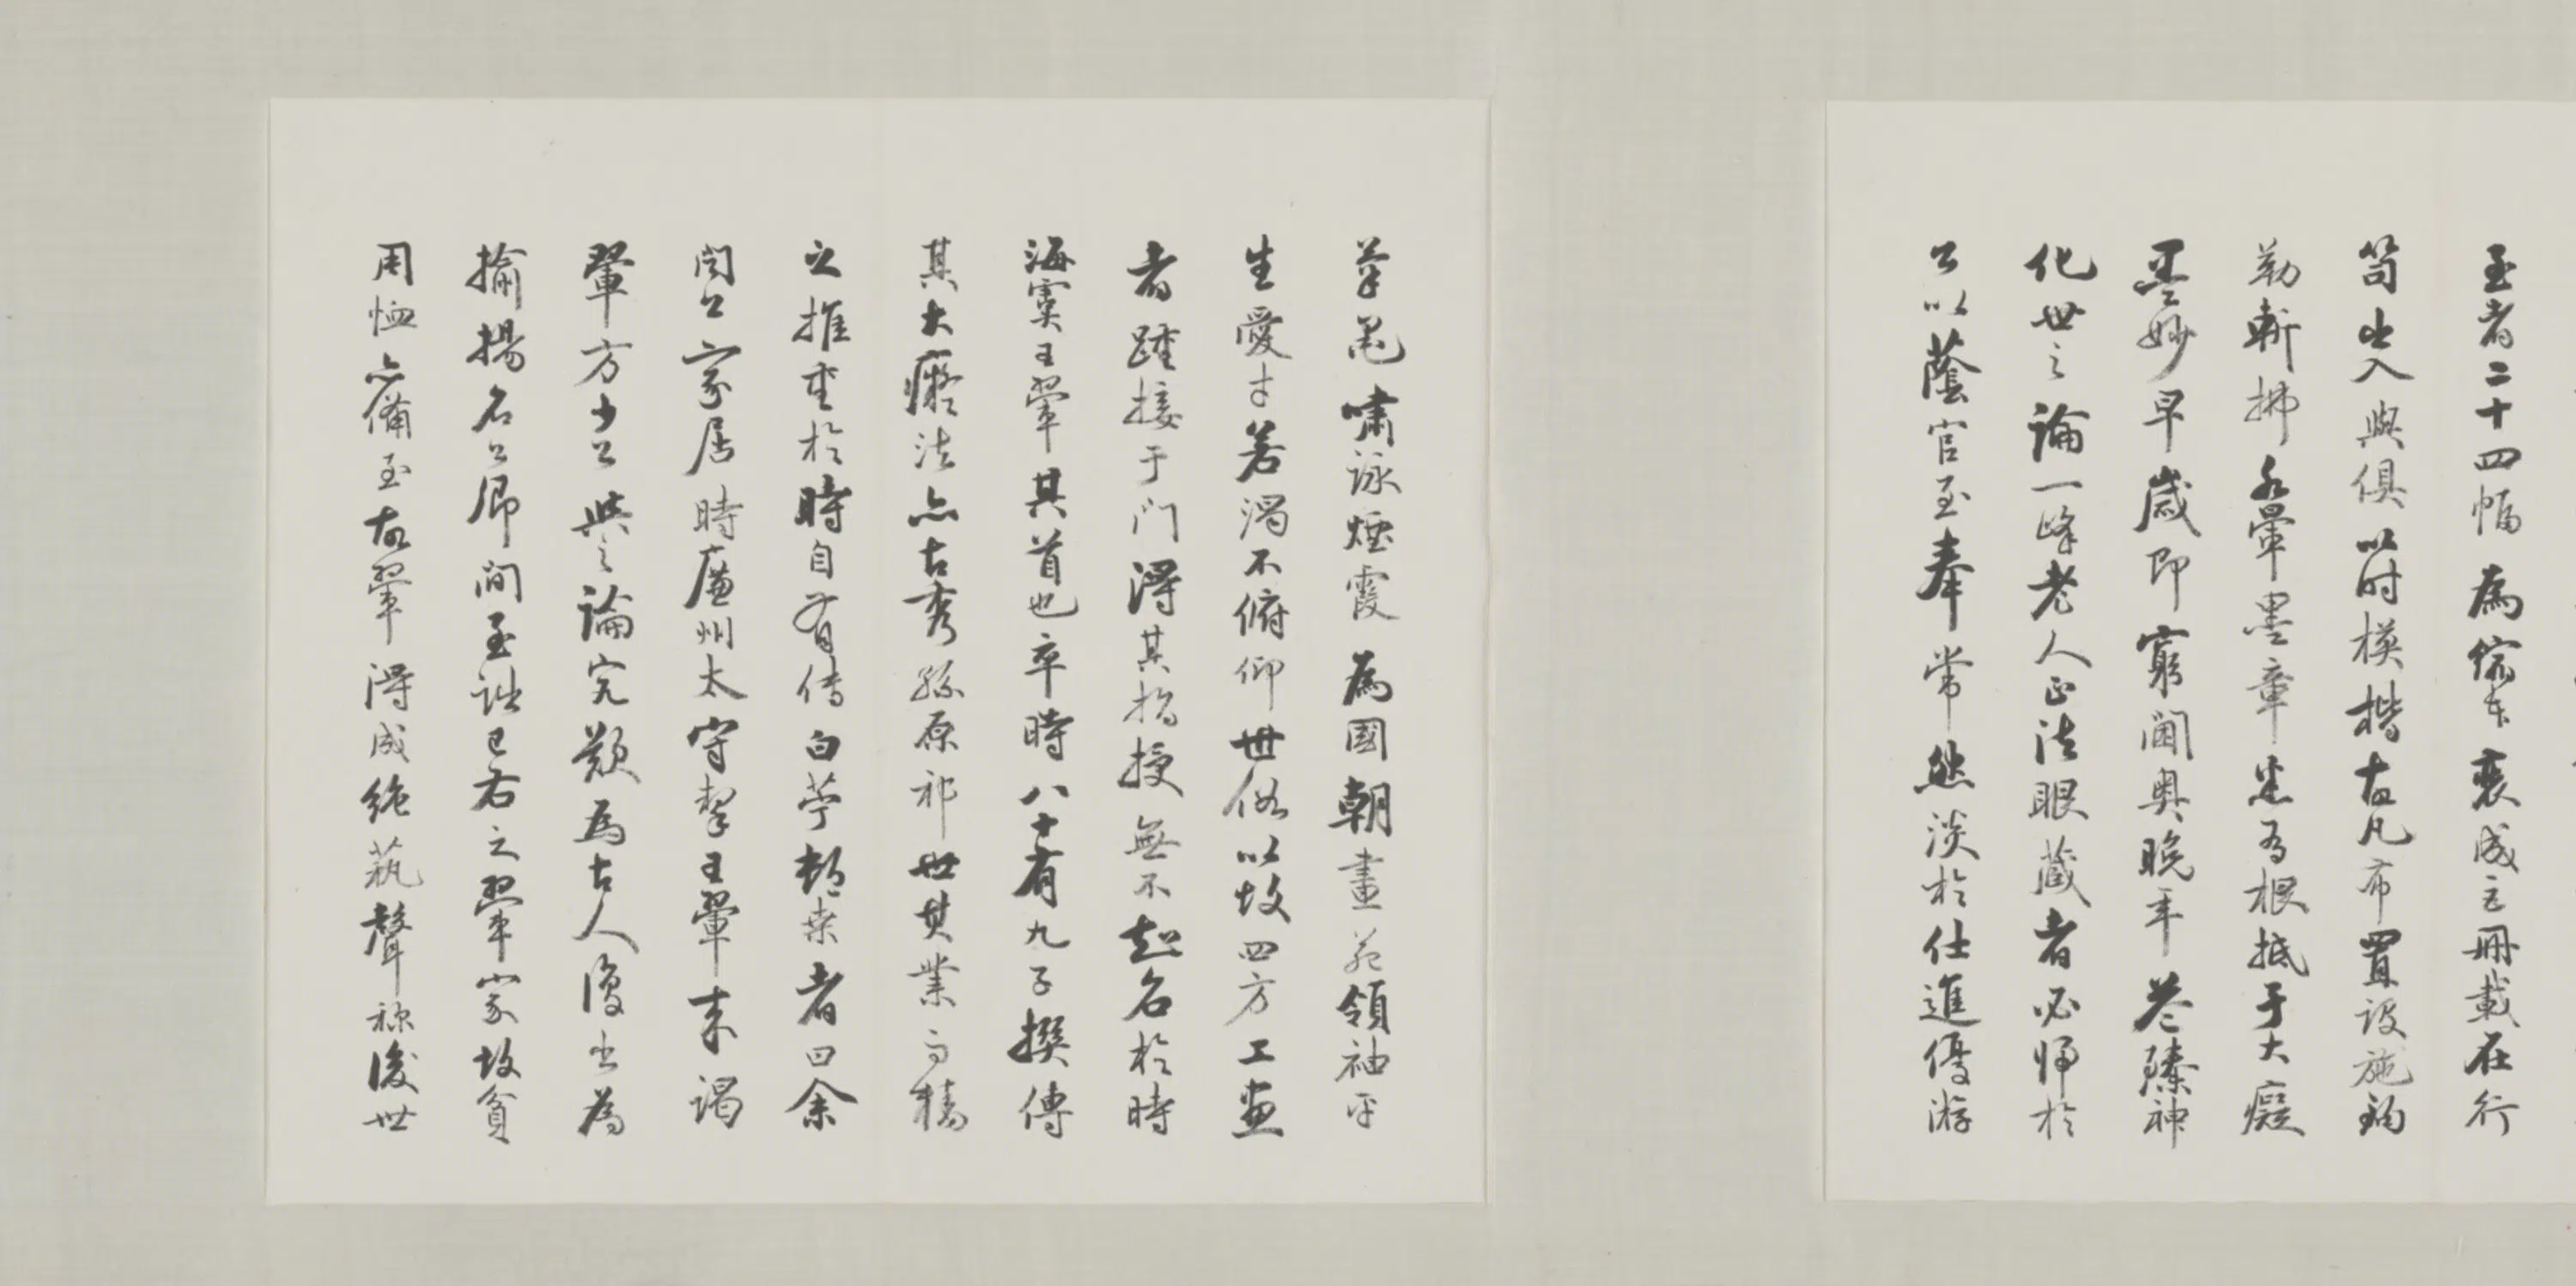 至者二十四幅為縮本裝成巨冊載在行
笥出入與俱以時模楷故凡布置設施鈎
勒斬拂水暈墨章悉有根抵于大癡
墨妙早歲即窮閫奧晚年益臻神
化世之論一峰老人正法眼藏者必歸於
公以蔭官至奉常然淡於仕進優游
筆墨嘯詠煙霞為國朝畫苑領袖平
生愛才若渴不俯仰世俗以故四方工畫
者踵接于門得其指授無不起名於時
海虞王翬其首也卒時八十有九子撰傳
其大癡法亦古秀孫原祁世其業而精
之推重於時自有傳白苧村桑者曰余
聞公家居時廉州太守挈王翬來謁
翬方少公與之論究歎為古人復出為
揄揚名公卿間至詘己右之翬家故貧
用恤亦備至故翬得成絕藝聲称後世